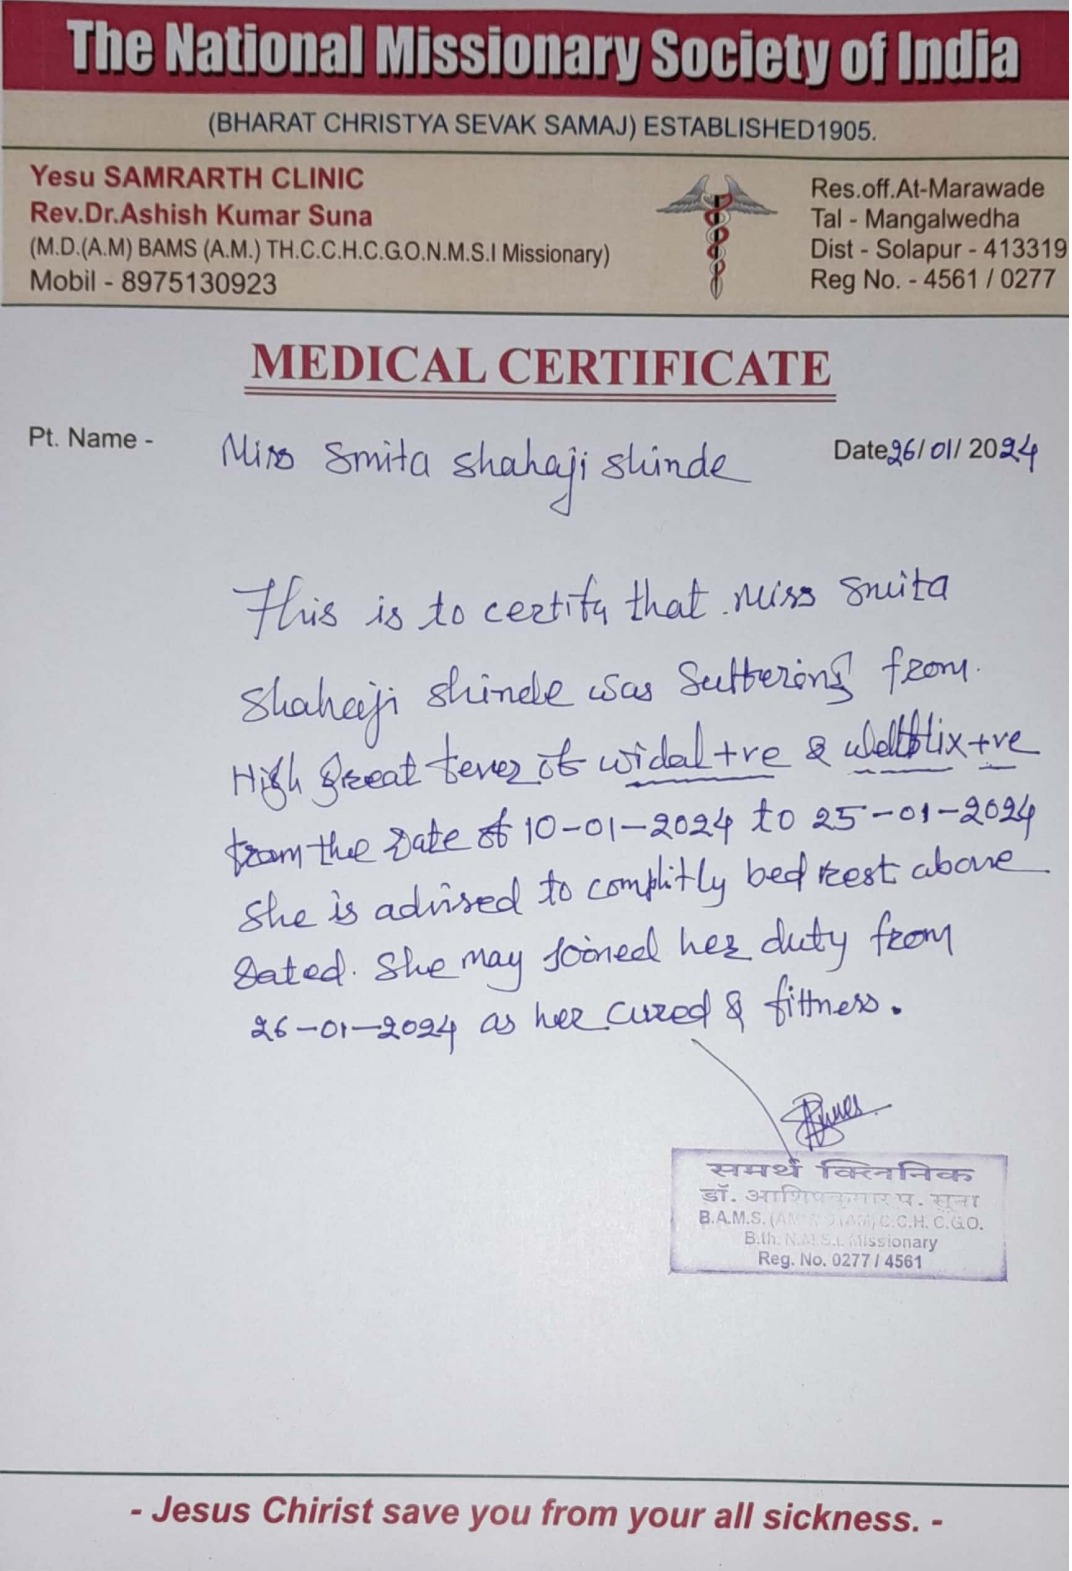 The National Missionary Society of India
(BHARAT CHRISTYA SEVAK SAMAJ) ESTABLISHED1905.
Yesu SAMRARTH CLINIC
Rev.Dr.Ashish Kumar Suna
(M.D.(A.M) BAMS (A.M.) TH.C.C.H.C.G.O.N.M.S.I Missionary)
Mobil - 8975130923
Res.off.At-Marawade
Tal - Mangalwedha
Dist - Solapur - 413319
Reg No. - 4561 / 0277
MEDICAL CERTIFICATE
Pt. Name - Miss Smita Shahaji Shinde
Date 26/01/2024
This is to certify that Miss Smita
Shahaji Shinde was Suffering from.
High Great fever of widal +ve & wellflix +ve
from the Date of 10-01-2024 to 25-01-2024
She is advised to complitly bed rest above
Dated. She may Joined her duty from
26-01-2024 as her cured & fittness.
समर्थ क्लिनिक
डॉ. आशिषकुमार प. सूना
B.A.M.S. C.C.H. C.G.O.
B.th. N.M.S.I. Missionary
Reg. No. 0277 / 4561
- Jesus Chirist save you from your all sickness. -